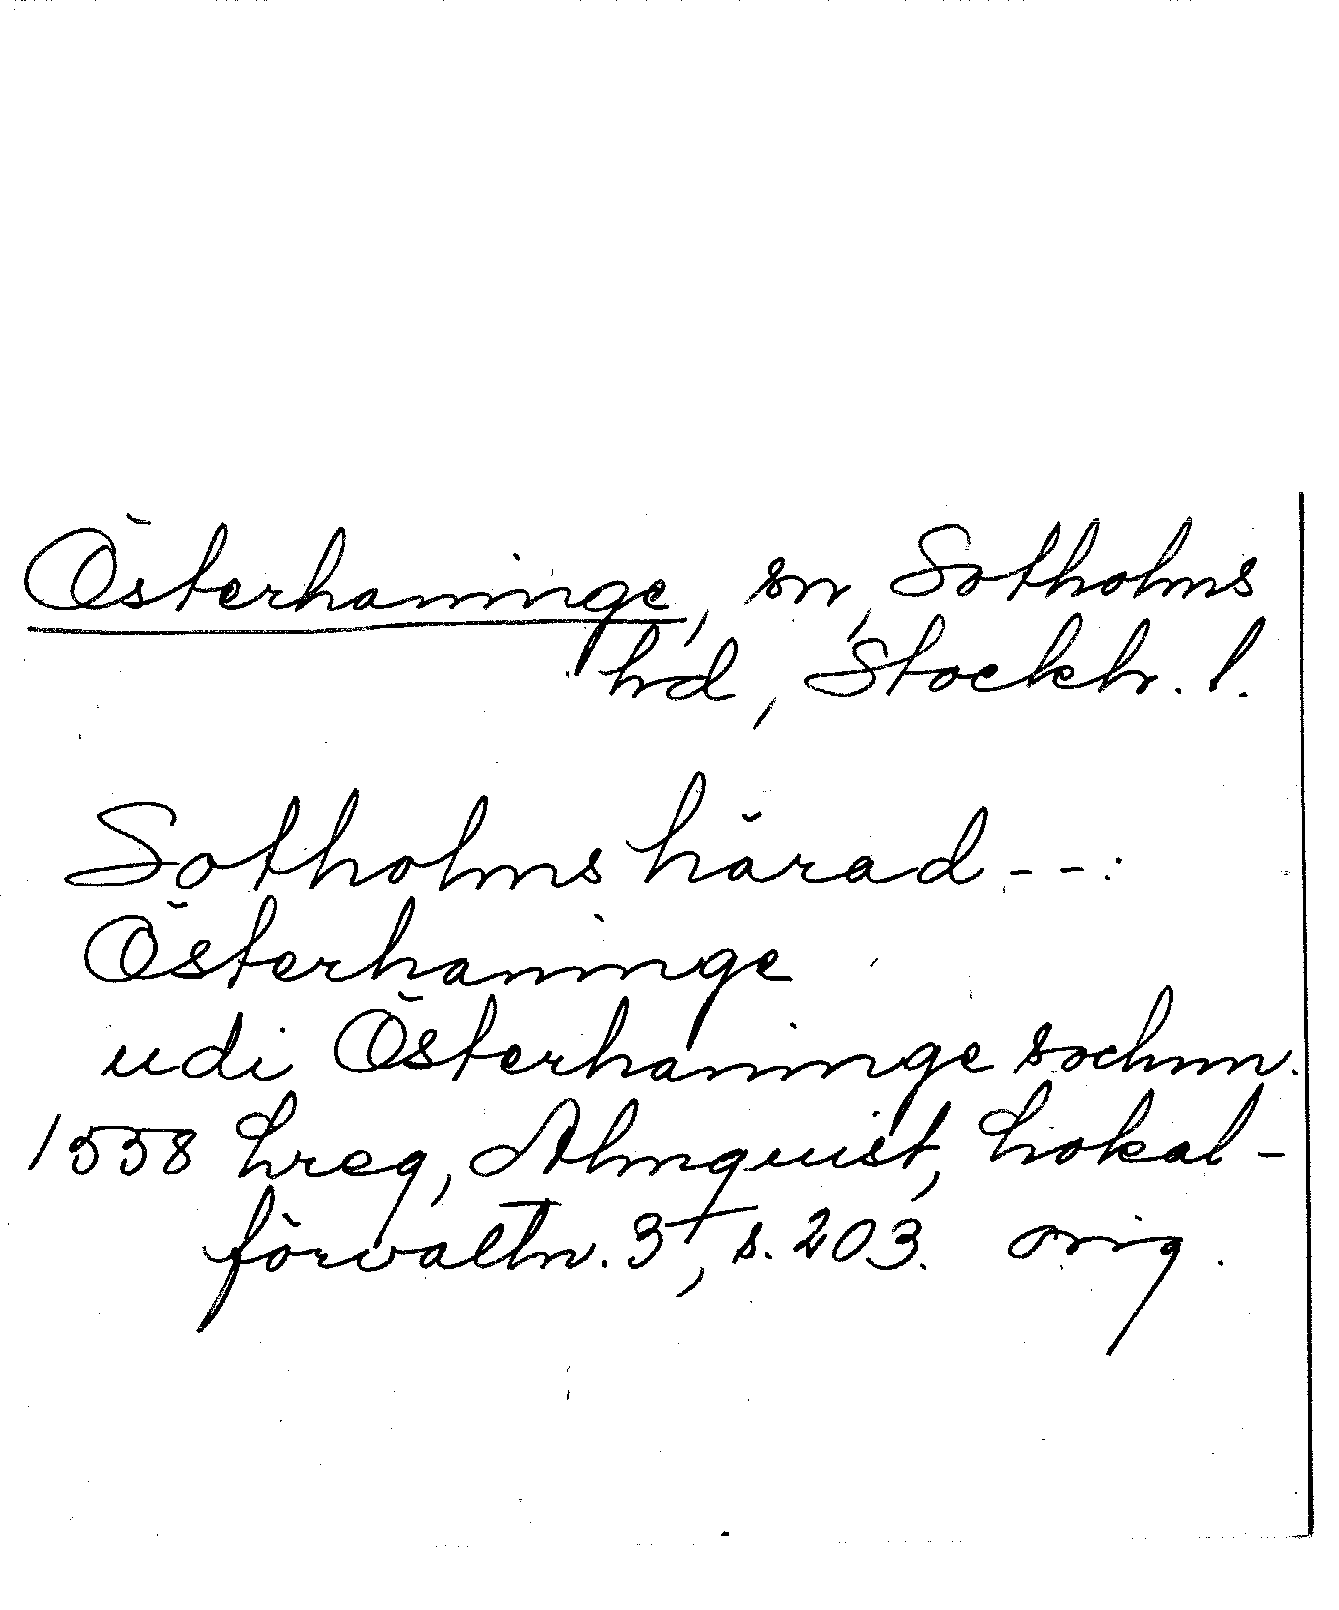 Österhaninge, sn, Sotholms
hd, Stockh. l.
Sotholms härad --:
Österhaninge
udi Österhaninge sochnn.
1558 Lreg, Almquist, Lokal-
förvaltn. 3, s. 203. orig.